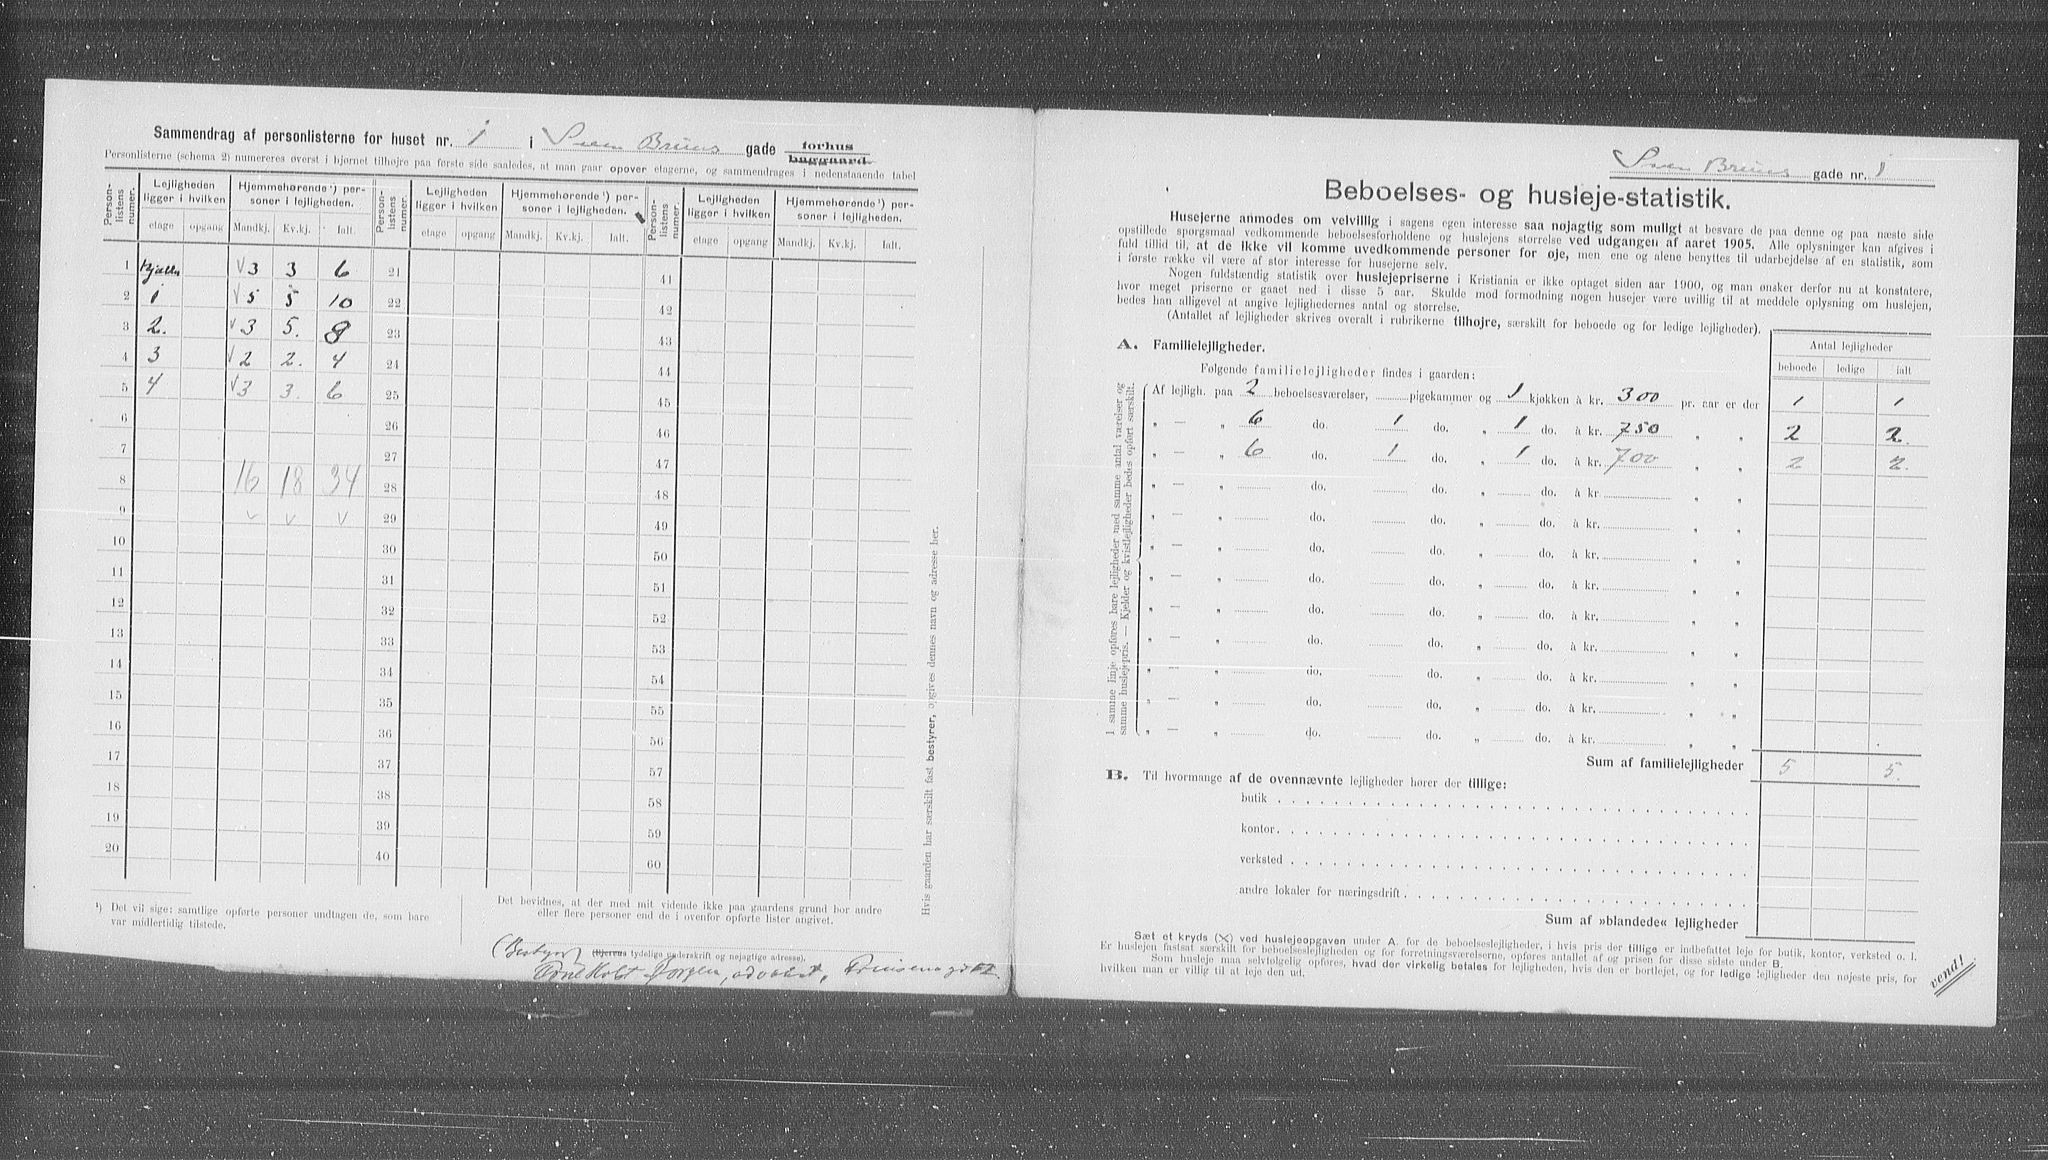 Sammendrag af personlisterne for huset nr. 1 i Sven Bruns gade forhus baggaard.
Personlisterne (schema 2) numereres øverst i hjørnet tilhøjre paa første side saaledes, at man gaar opover etagerne, og sammendrages i nedenstaaende tabel
Person-listens numer. Lejligheden ligger i hvilken Hjemmehørende¹) per-soner i lejligheden. Person-listens numer. Lejligheden ligger i hvilken Hjemmehørende¹) per-soner i lejligheden. Person-listens numer. Lejligheden ligger i hvilken Hjemmehørende¹) per-soner i lejligheden.
etage opgang Mandkj. Kv.kj. Ialt. etage opgang Mandkj. Kv.kj. Ialt. etage opgang Mandkj. Kv.kj. Ialt.
1 Kjælder √3 3 6 21 41
2 1 √5 5 10 22 42
3 2. √3 5. 8 23 43
4 3 √2 2. 4 24 44
5 4 √3 3. 6 25 45
6 26 46
7 27 47
8 16 18 34 28 48
9 v v v 29 49
10 30 50
11 31 51
12 32 52
13 33 53
14 34 54
15 35 55
16 36 56
17 37 57
18 38 58
19 39 59
20 40 60
¹) Det vil sige: samtlige opførte personer undtagen de, som bare
var midlertidig tilstede.
Det bevidnes, at der med mit vidende ikke paa gaardens grund bor andre
eller flere personer end de i ovenfor opførte lister angivet.
(Bestyrer) (Ejerens tydelige underskrift og nøjagtige adresse).
Holst Jørgen, advokat, Prinsensgd
Hvis gaarden har særskilt fast bestyrer, opgives dennes navn og adresse her.
Sven Bruns gade nr. 1
Beboelses- og husleje-statistik.
Husejerne anmodes om velvillig i sagens egen interesse saa nøjagtig som muligt at besvare de paa denne og paa næste side
opstillede spørgsmaal vedkommende beboelsesforholdene og huslejens størrelse ved udgangen af aaret 1905. Alle oplysninger kan afgives i
fuld tillid til, at de ikke vil komme uvedkommende personer for øje, men ene og alene benyttes til udarbejdelse af en statistik, som
i første række vil være af stor interesse for husejerne selv.
Nogen fuldstændig statistik over huslejepriserne i Kristiania er ikke optaget siden aar 1900, og man ønsker derfor nu at konstatere,
hvor meget priserne er gaaet ned i disse 5 aar. Skulde mod formodning nogen husejer være uvillig til at meddele oplysning om huslejen,
bedes han alligevel at angive lejlighedernes antal og størrelse.
(Antallet af lejligheder skrives overalt i rubrikerne tilhøjre, særskilt for beboede og for ledige lejligheder).
A. Familielejligheder.
Antal lejligheder
Følgende familielejligheder findes i gaarden:
beboede ledige ialt
Af lejligh. paa 2 beboelsesværelser, pigekammer og 1 kjøkken à kr. 300 pr. aar er der 1 1
„ — „ 6 do. 1 do. „ 1 do. à kr. 750 „ „ 2 2.
„ — „ 6 do. 1 do. „ 1 do. à kr. 700 „ „ 2 2.
„ — „ do. do. „ do. à kr. „ „
„ — „ do. do. „ do. à kr. „ „
„ — „ do. do. „ do. à kr. „ „
„ — „ do. do. „ do. à kr. „ „
„ — „ do. do. „ do. à kr. „ „
„ — „ do. do. „ do. à kr. „ „
„ — „ do. do. „ do. à kr. „ „
„ — „ do. do. „ do. à kr. „ „
„ — „ do. do. „ do. à kr. „ „
I samme linje opføres bare lejligheder med samme antal værelser og
samme huslejepris. — Kjelder og kvistlejligheder bedes opført særskilt.
Sum af familielejligheder 5 5.
B. Til hvormange af de ovennævnte lejligheder hører der tillige:
butik
kontor
verksted
andre lokaler for næringsdrift
Sum af »blandede« lejligheder
Sæt et kryds (×) ved huslejeopgaven under A. for de beboelseslejligheder, i hvis pris der tillige er indbefattet leje for butik, kontor, verksted o. l.
Er huslejen fastsat særskilt for beboelseslejligheden og for forretningsværelserne, opføres antallet af og prisen for disse sidste under B.
Som husleje maa selvfølgelig opføres, hvad der virkelig betales for lejligheden, hvis den er bortlejet, og for ledige lejligheder den nøjeste pris, for
hvilken man er villig til at leje den ud.
vend!